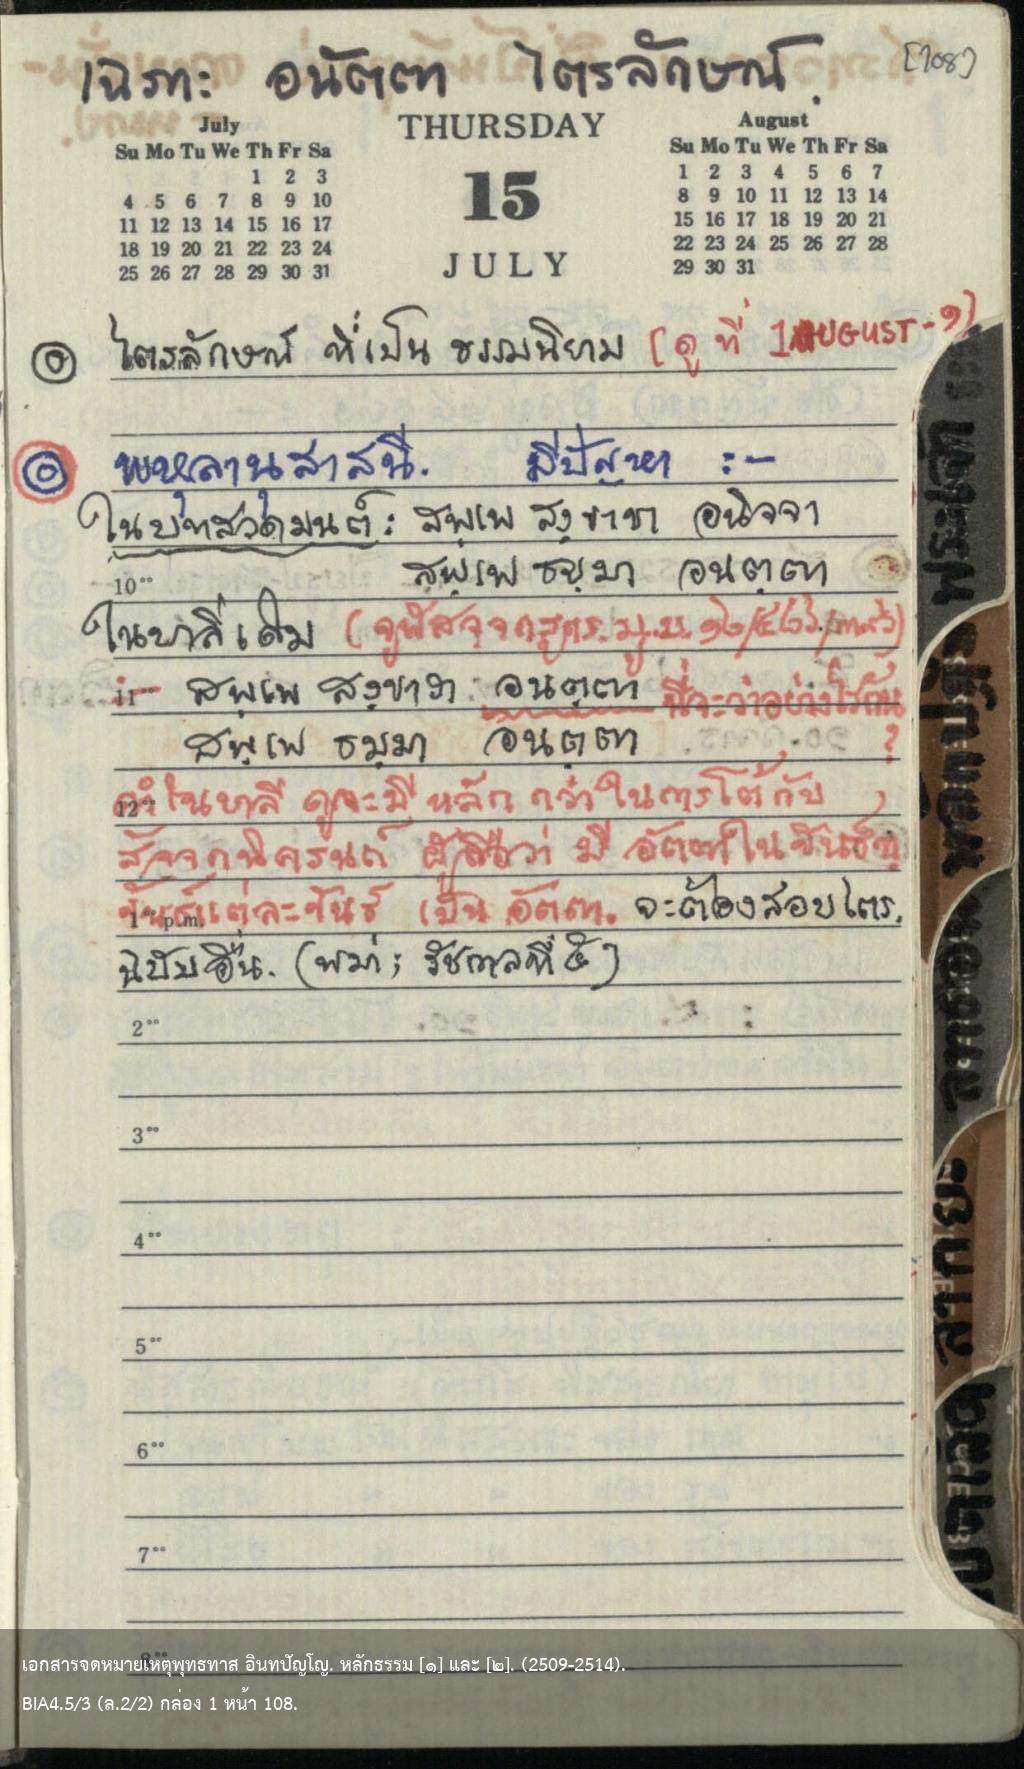 เฉพาะ อนัตตา ไตรลักษณ์. [108]
July
Su Mo Tu We Th Fr Sa
1 2 3
4 5 6 7 8 9 10
11 12 13 14 15 16 17
18 19 20 21 22 23 24
25 26 27 28 29 30 31
THURSDAY
15
JULY
August
Su Mo Tu We Th Fr Sa
1 2 3 4 5 6 7
8 9 10 11 12 13 14
15 16 17 18 19 20 21
22 23 24 25 26 27 28
29 30 31
ไตรลักษณ์ ที่เป็น ธรรมนิยาม (ดูที่ 1 AUGUST -๑)
มีปัญหา :-
ในบทสวดมนต์: สพฺเพ สงฺขารา อนิจจา
10°° สพฺเพ ธมฺมา อนตฺตา
ในบาลีเดิม (จูฬสจฺจกสูตร. มู.ม.
11°° สพฺเพ สงฺขารา อนตฺตา นี่จะว่าอย่างไรกัน
สพฺเพ ธมฺมา อนตฺตา ?
12°° คำในบาลี ดูจะมี หลัก กว่า ในการโต้กับ
สัจจกนิครนถ์ ผู้ถือว่า มี อัตตาในขันธ์ทุ
1°° p.m. ขันธ์แต่ละขันธ์ เป็น อัตตา. จะต้องสอบไตร.
ฉบับอื่น. (พม่า; รัชกาลที่ ๕)
2°°
3°°
4°°
5°°
6°°
7°°
8°°
พระเจ้า
หลักปฏิ
สารกยะ
เกตเล็ด
เอกสารจดหมายเหตุพุทธทาส อินทปัญโญ. หลักธรรม [๑] และ [๒]. (2509-2514).
BIA4.5/3 (ล.2/2) กล่อง 1 หน้า 108.